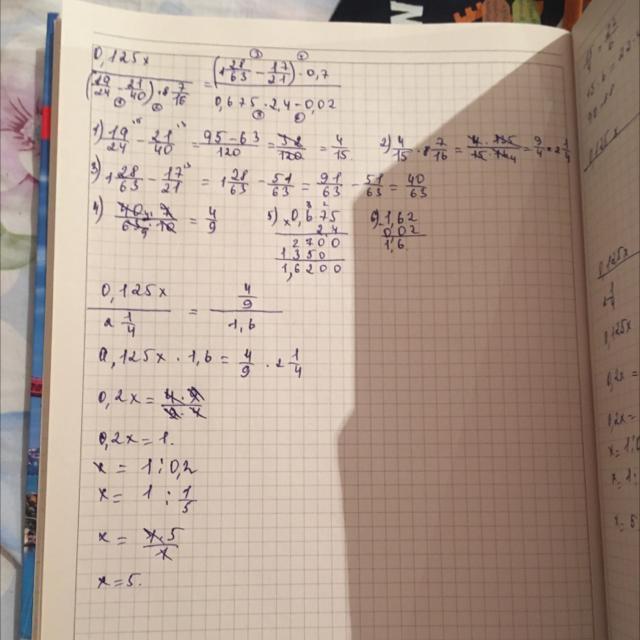 0,125x / ((19/24 - 21/40) · 8 7/16) = ((1 28/63 - 17/21) · 0,7) / (0,675 · 2,4 - 0,02)
1) 19/24 - 21/40 = (95-63)/120 = 38/120 = 4/15
2) 4/15 · 8 7/16 = (4 · 135)/(15 · 164) = 9/4 = 2 1/4
3) 1 28/63 - 17/21 = 1 28/63 - 51/63 = 91/63 - 51/63 = 40/63
4) (40 · 7)/(63 · 10) = 4/9
5) x 0,675
2,4
2700
1350
1,6200
6) -1,62
0,02
1,6
0,125x / 2 1/4 = 4/9 / 1,6
0,125x · 1,6 = 4/9 · 2 1/4
0,2x = (4 · 9)/(9 · 4)
0,2x = 1.
x = 1 : 0,2
x = 1 : 1/5
x = (1 · 5)/1
x = 5.